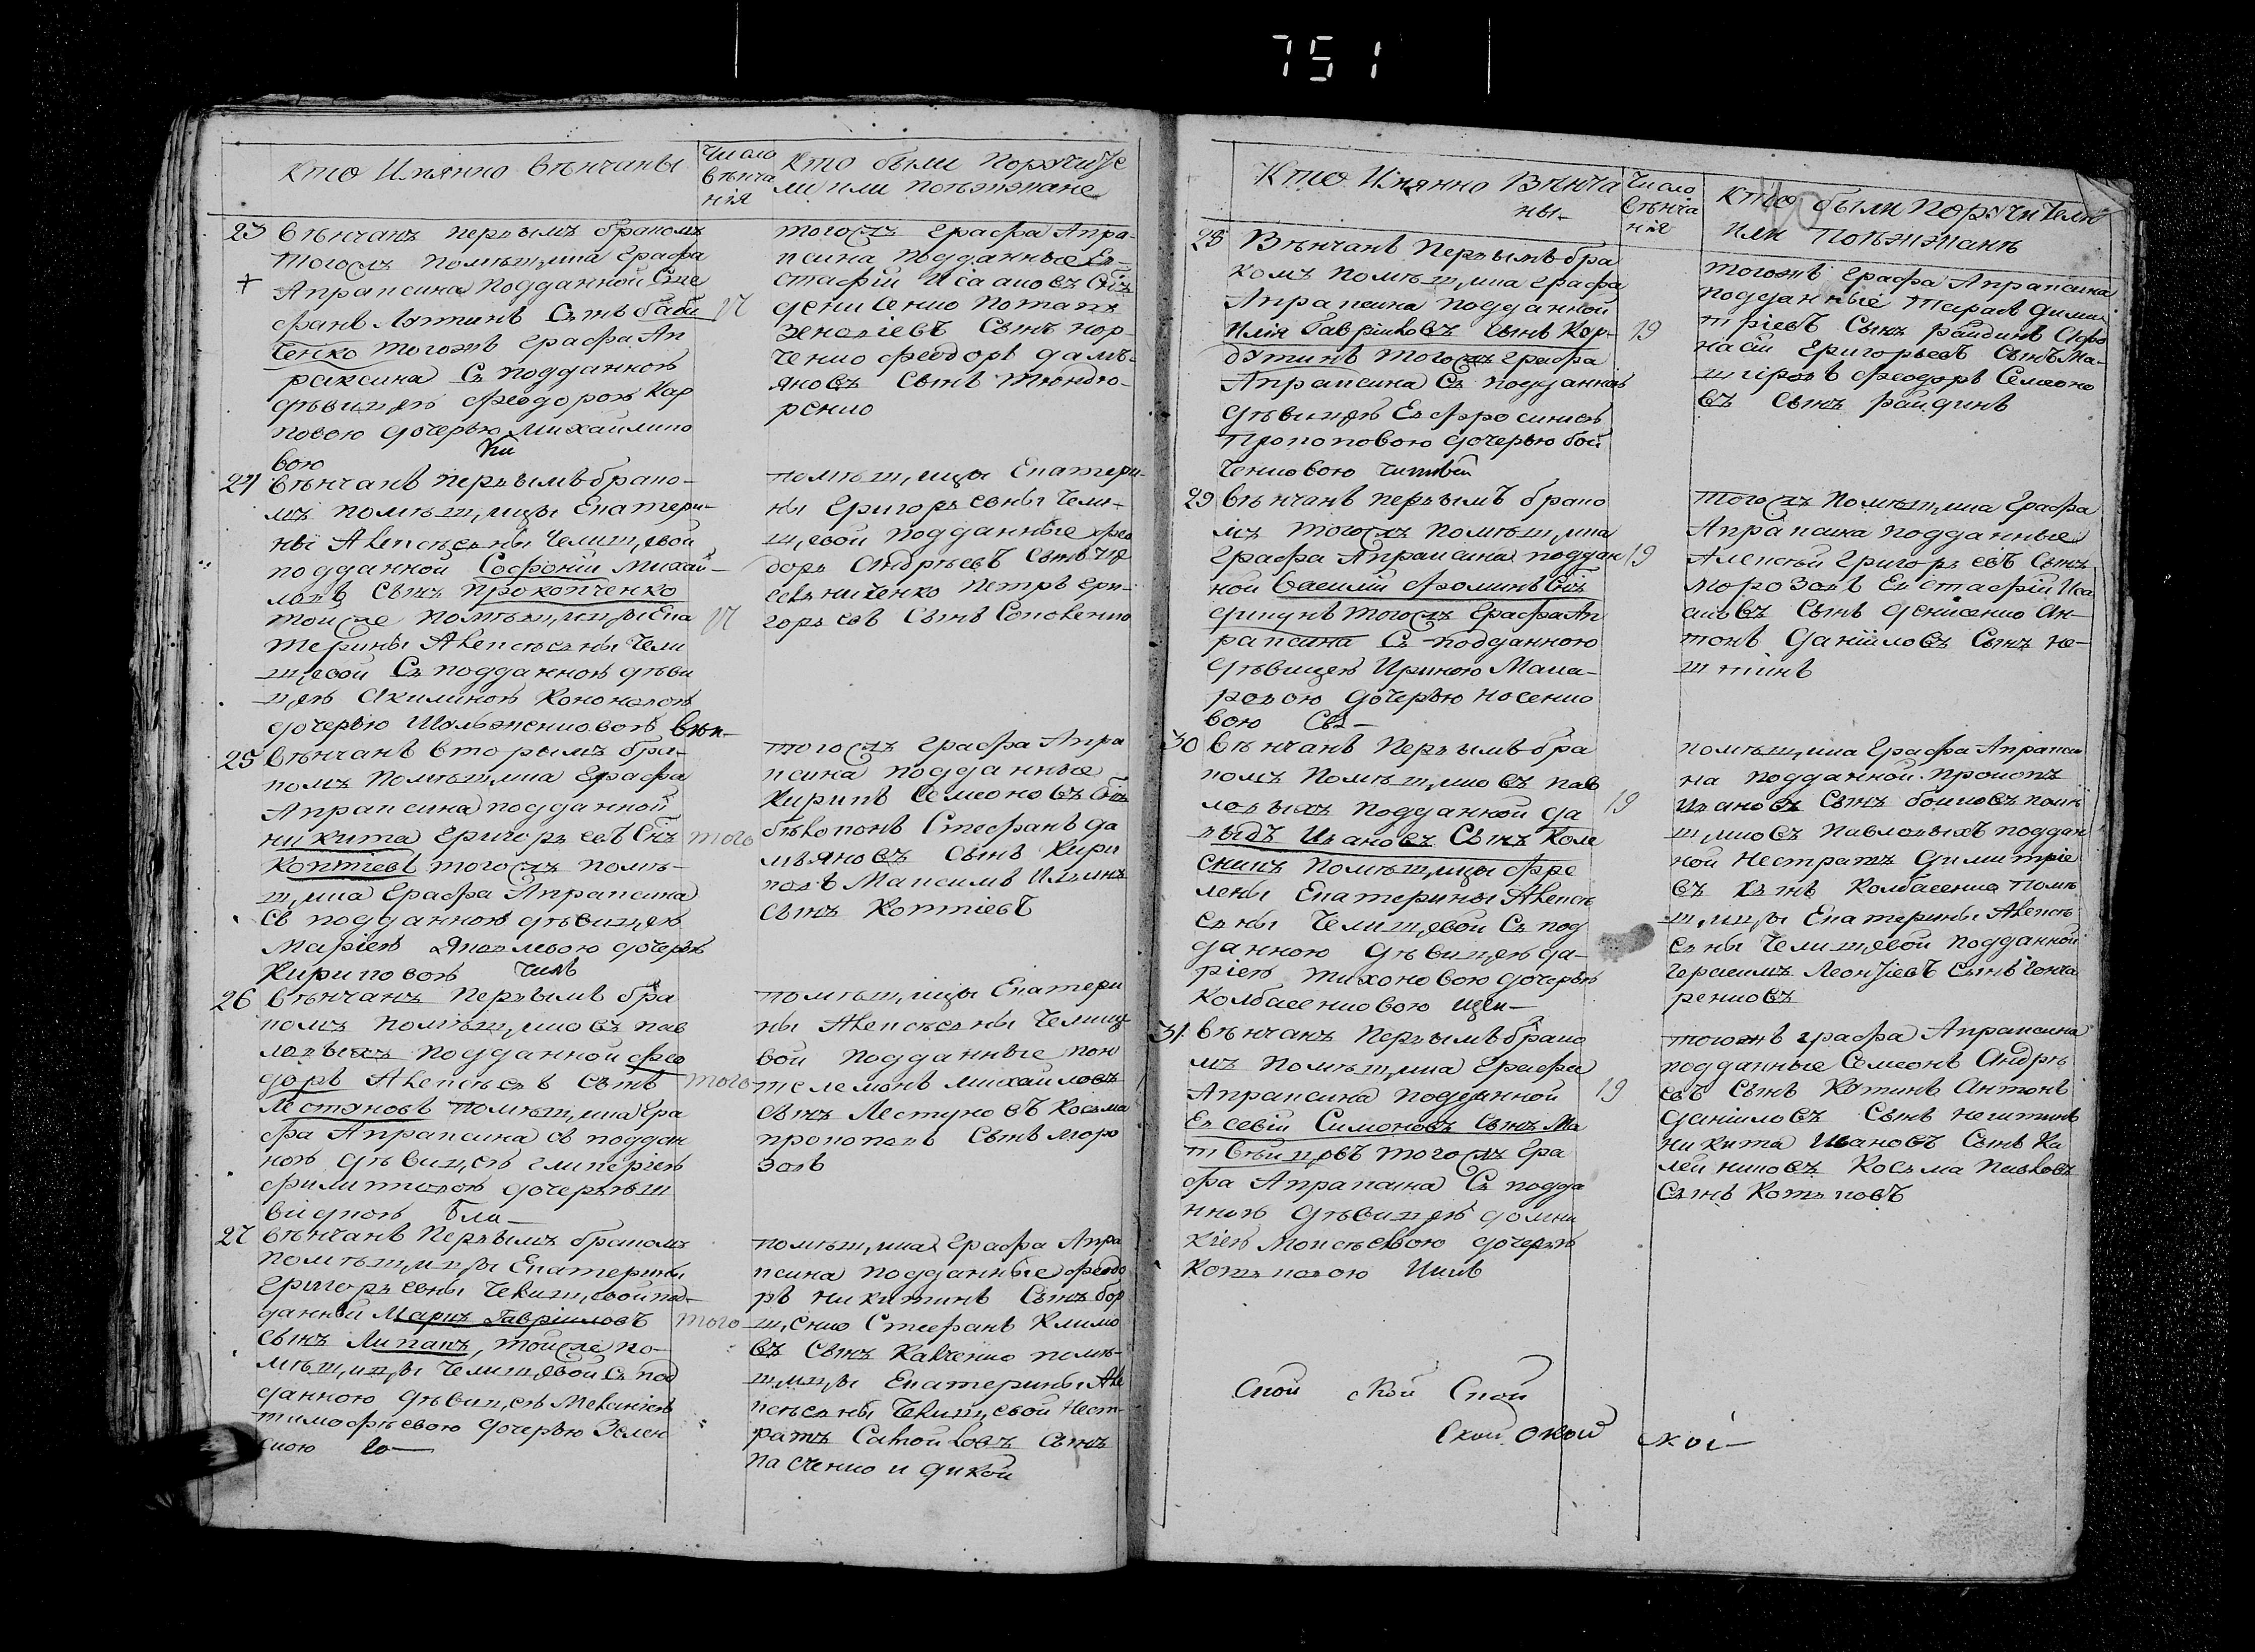 751
Кто Имянно венчаны
Число
венча
нія
Кто были поручите
ли или поезжане
23 венчанъ первымъ бракомъ
тогожъ помѣщика Графа
Апраксина подданной Сте
фанъ сынъ баби
ченко тогожъ Графа Ап
раксина съ подданною
дѣвицею Феодорою Кар
повою дочерью Михайлико
вою
17
тогожъ Графа Апра-
ксина подданные Ев-
стафій Ісааковъ снъ
денисенко Потапъ
Зеновіевъ сынъ кор
ченко Феодоръ дамъ-
яновъ сынъ тюндю-
ренко
24 вѣнчанъ первымъ брако-
мъ помѣщицы Екатери-
ны Алексѣевны Челищевой
подданной Софоній Михай-
ловъ сынъ прокопченко
тойже помѣщицы Ека
терины Алексѣевны Чели
щевой съ подданною дѣви
цею Акилиною Кононовою
дочерью
17
помѣщицы Екатери-
ны Григорьевны Чели-
щевой подданные Фео
доръ Андрѣевъ сынъ
Петръ Гри-
горьевъ сынъ
25 вѣнчанъ вторымъ бра-
комъ помѣщика Графа
Апраксина подданной
никита Григорьевъ снъ
Коптіевъ тогожъ помѣ-
щика Графа Апраксина
съ подданною дѣвицею
Маріею Яковлевою дочерью
Кириковою
того
тогожъ Графа Апра
ксина подданные
Кирикъ Семеоновъ снъ
бѣлоконь Стефанъ да
мьяновъ сынъ Кири
ковъ Максимъ Ильинъ
сынъ Коптіевъ
26 вѣнчанъ первымъ бра
комъ помѣщиковъ пав
ловыхъ подданной Фео
доръ Алексѣевъ сынъ
Лестуновъ помѣщика Гра
фа Апраксина съ поддан
ною дѣвицею гликеріею
дочерью
того
помѣщицы Екатери
ны Алексѣевны Челище
вой подданные пан
телемонъ михайловъ
сынъ Лестуновъ Косьма
прокоповъ сынъ моро
зовъ
27 вѣнчанъ первымъ бракомъ
помѣщицы Екатерины
Григорьевны Челищевой под-
данной Маркъ Гавріиловъ
сынъ Липакъ, тойже по-
мѣщицы Челищевой съ под
данною дѣвицею Меланіею
тимофѣевою дочерью Зелен
скою
того
помѣщика Графа Апра
ксина подданные Феодо
ръ никитинъ сынъ бор
щенко Стефанъ Климо
въ сынъ Кавченко помѣ-
щицы Екатерины Але
ксѣевны Челищевой Нест-
ратъ Самойловъ сынъ
пасченко и дикой
Кто Имянно Вѣнча
ны
Число
вѣнча
нія
Кто были поручители
или поѣзжане
28 Вѣнчанъ первымъ бра
комъ помѣщика Графа
Апраксина подданной
Илія Гавріиловъ сынъ Кор-
дутинъ тогожъ Графа
Апраксина съ подданною
дѣвицею Евфросиніею
прокоповою дочерью бой
ченковою
19
тогожъ Графа Апраксина
подданные Тарасъ дими
тріевъ сынъ райдинъ Афо
насій Григорьевъ сынъ Ма-
Феодоръ Семеоно
въ сынъ райдинъ
29 вѣнчанъ первымъ брако
мъ тогожъ помѣщика
Графа Апраксина поддан
ной Василій Фоминъ снъ
тогожъ Графа Ап
раксина съ подданною
дѣвицею Ириною Мака-
ровою дочерью носенко
вою
19
тогожъ помѣщика Графа
Апраксина подданные
Алексѣй Григорьевъ сынъ
морозовъ Евстафій Иса
аковъ сынъ денисенко Ан-
тонъ Даніиловъ сынъ не-
шитинъ
30 вѣнчанъ первымъ бра
комъ помѣщиковъ пав
ловыхъ подданной да
выдъ Ивановъ сынъ Коле
сникъ помѣщицы
Екатерины Алексѣ
евны Челищевой съ под
данною дѣвицею да-
ріею тихоновою дочерью
Колбасенковою
19
помѣщика Графа Апракси
на подданной прокопъ
Ивановъ сынъ бойковъ помѣ
щиковъ павловыхъ поддан
ной Нестратъ Димитріе
въ сынъ Колбасенко помѣ
щицы Екатерины Алексѣ
евны Челищевой подданной
Герасимъ Леонтіевъ сынъ Гонча
ренковъ
31 вѣнчанъ первымъ брако
мъ помѣщика Графа
Апраксина подданной
Евсевій Симоновъ сынъ Ма
твѣйцовъ тогожъ Гра
фа Апраксина съ подда
нною дѣвицею домни
кіею Моисѣевою дочерью
Котьковою
19
тогожъ графа Апраксина
подданные Семеонъ Андрѣ
евъ сынъ Котинъ Антонъ
даніиловъ сынъ нешитинъ
никита Ивановъ сынъ Ка
лейниковъ Косьма Павловъ
сынъ Котьковъ
Ской ской Ской
Ской Окой ской